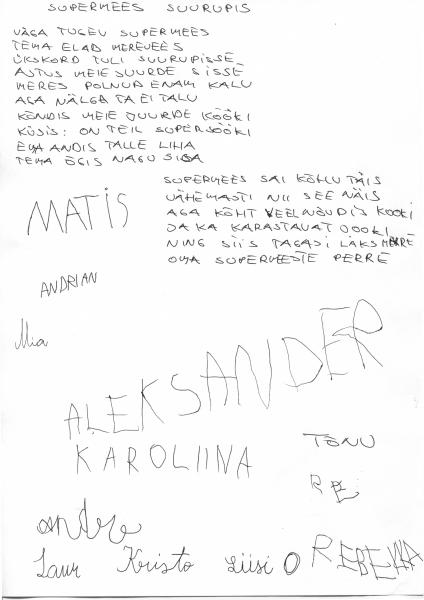 SUPERMEES SUURUPIS
VÄGA TUGEV SUPERMEES
TEMA ELAB MEREVEES
ÜKSKORD TULI SUURUPISSE
ASTUS MEIE JUURDE SISSE
MERES POLNUD ENAM KALU
AGA NÄLGA TA EI TALU
KÕNDIS MEIE JUURDE KÖÖKI
KÜSIS: ON TEIL SUPERSÖÖKI
EMA ANDIS TALLE LIHA
TEMA ÕGIS NAGU SIGA
SUPERMEES SAI KÕHU TÄIS
VÄHEMASTI NII SEE NÄIS
AGA KÕHT VEEL NÕUDIS KOOKI
JA KA KARASTAVAT JOOKI
NING SIIS TAGASI LÄKS MERRE
OMA SUPERMEESTE PERRE
MATIS
ANDRIAN
Mia
ALEKSANDER
KAROLIINA
TÕNU
RE
andre
REBEKKA
Laur Kristo Liisi O